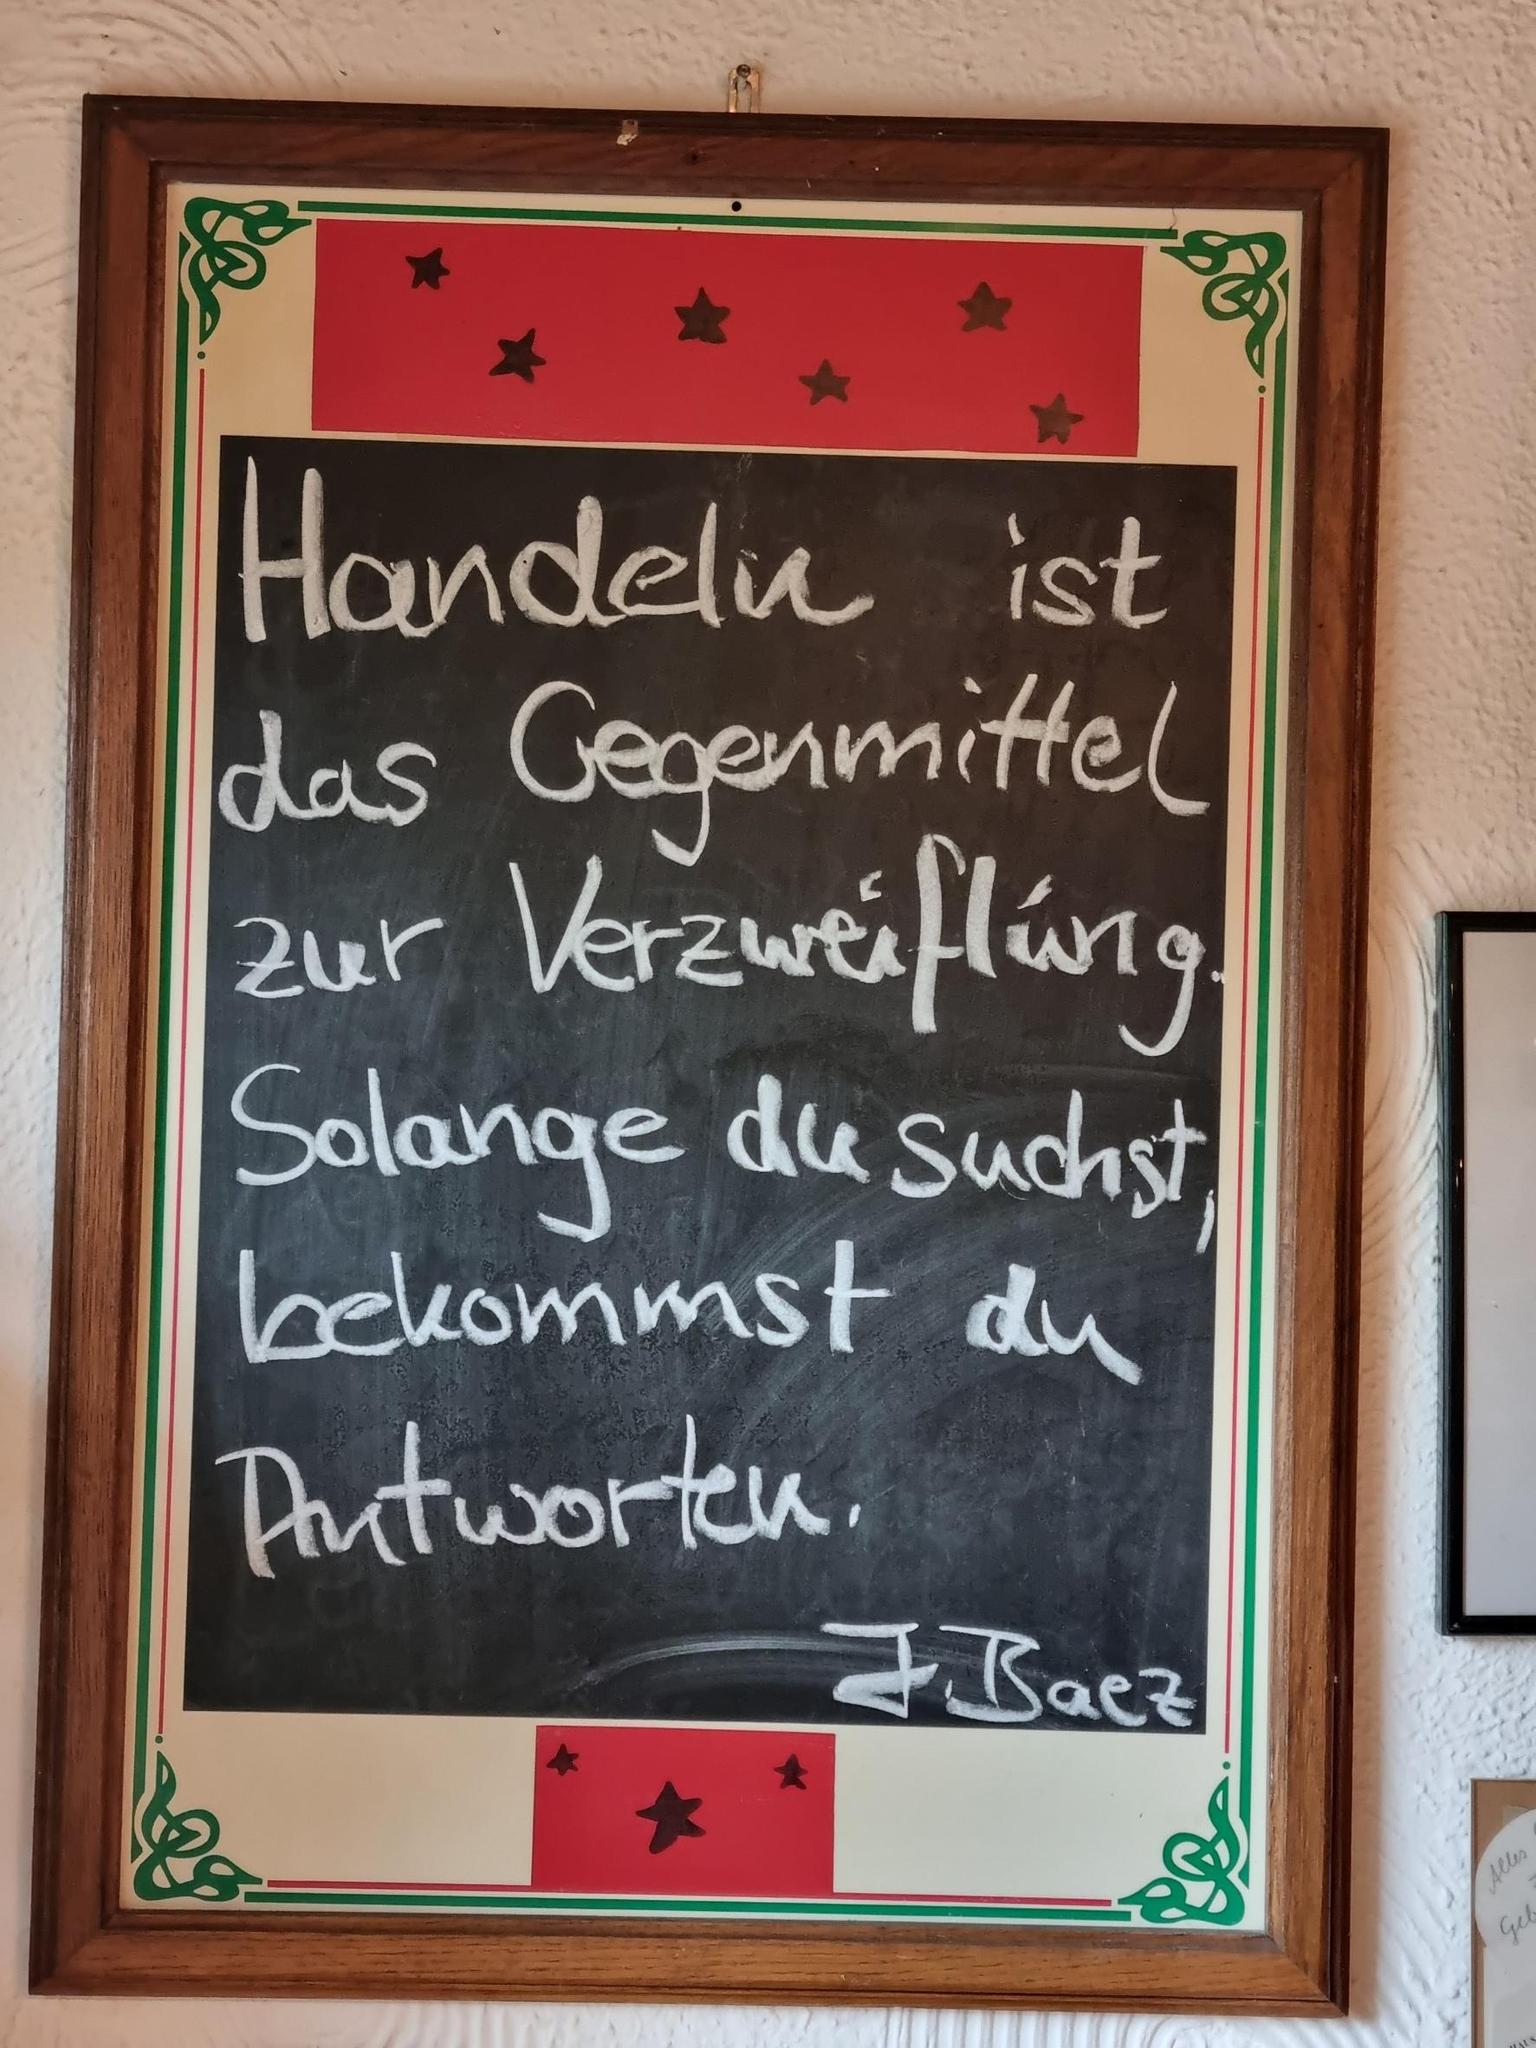 Handeln ist
das Gegenmittel
zur Verzweiflung.
Solange du suchst,
bekommst du
Antworten.
J. Baez
Alles